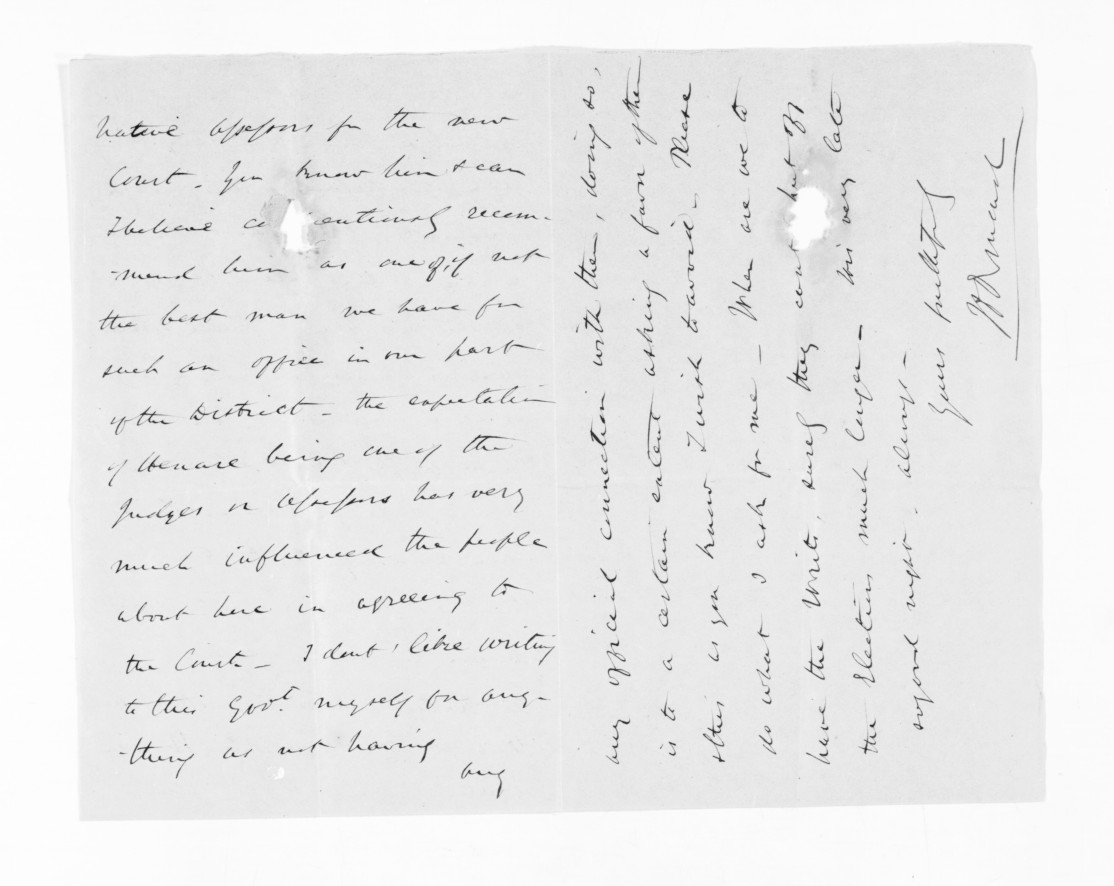 Native Assessors for the new
Court. You know him & can
I believe co entiously recom-
-mend him as one of, if not
the best man we have for
such an office in our part
of the District - the expectation
of Henare being one of the
Judges or Assessors has very
much influenced the people
about here in agreeing to
the Court - I dont like writing
to this Govt. myself for any-
-thing as not having
any
any official connection with them, doing so,
is to a certain extent asking a favor of them
& this as you know I wish to avoid - Please
do what I ask for me - When are we to
have the Writs, surely they cant put off
the Elections much longer - tis very late
so good night. always -
Yours faithfully